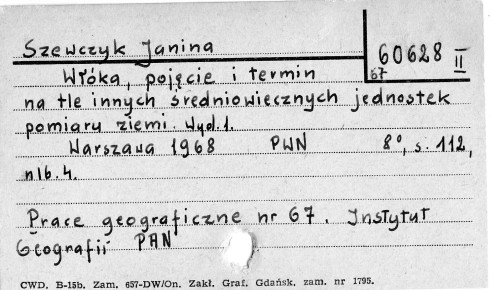 Szewczyk Janina
60628 II
67
Włóka, pojęcie i termin
na tle innych średniowiecznych jednostek
pomiaru ziemi. Wyd. 1.
Warszawa 1968 PWN 8°, s. 112,
nlb. 4.
Prace geograficzne nr 67. Instytut
Geografii PAN
CWD. B-15b. Zam. 657-DW/On. Zakł. Graf. Gdańsk, zam. nr 1795.